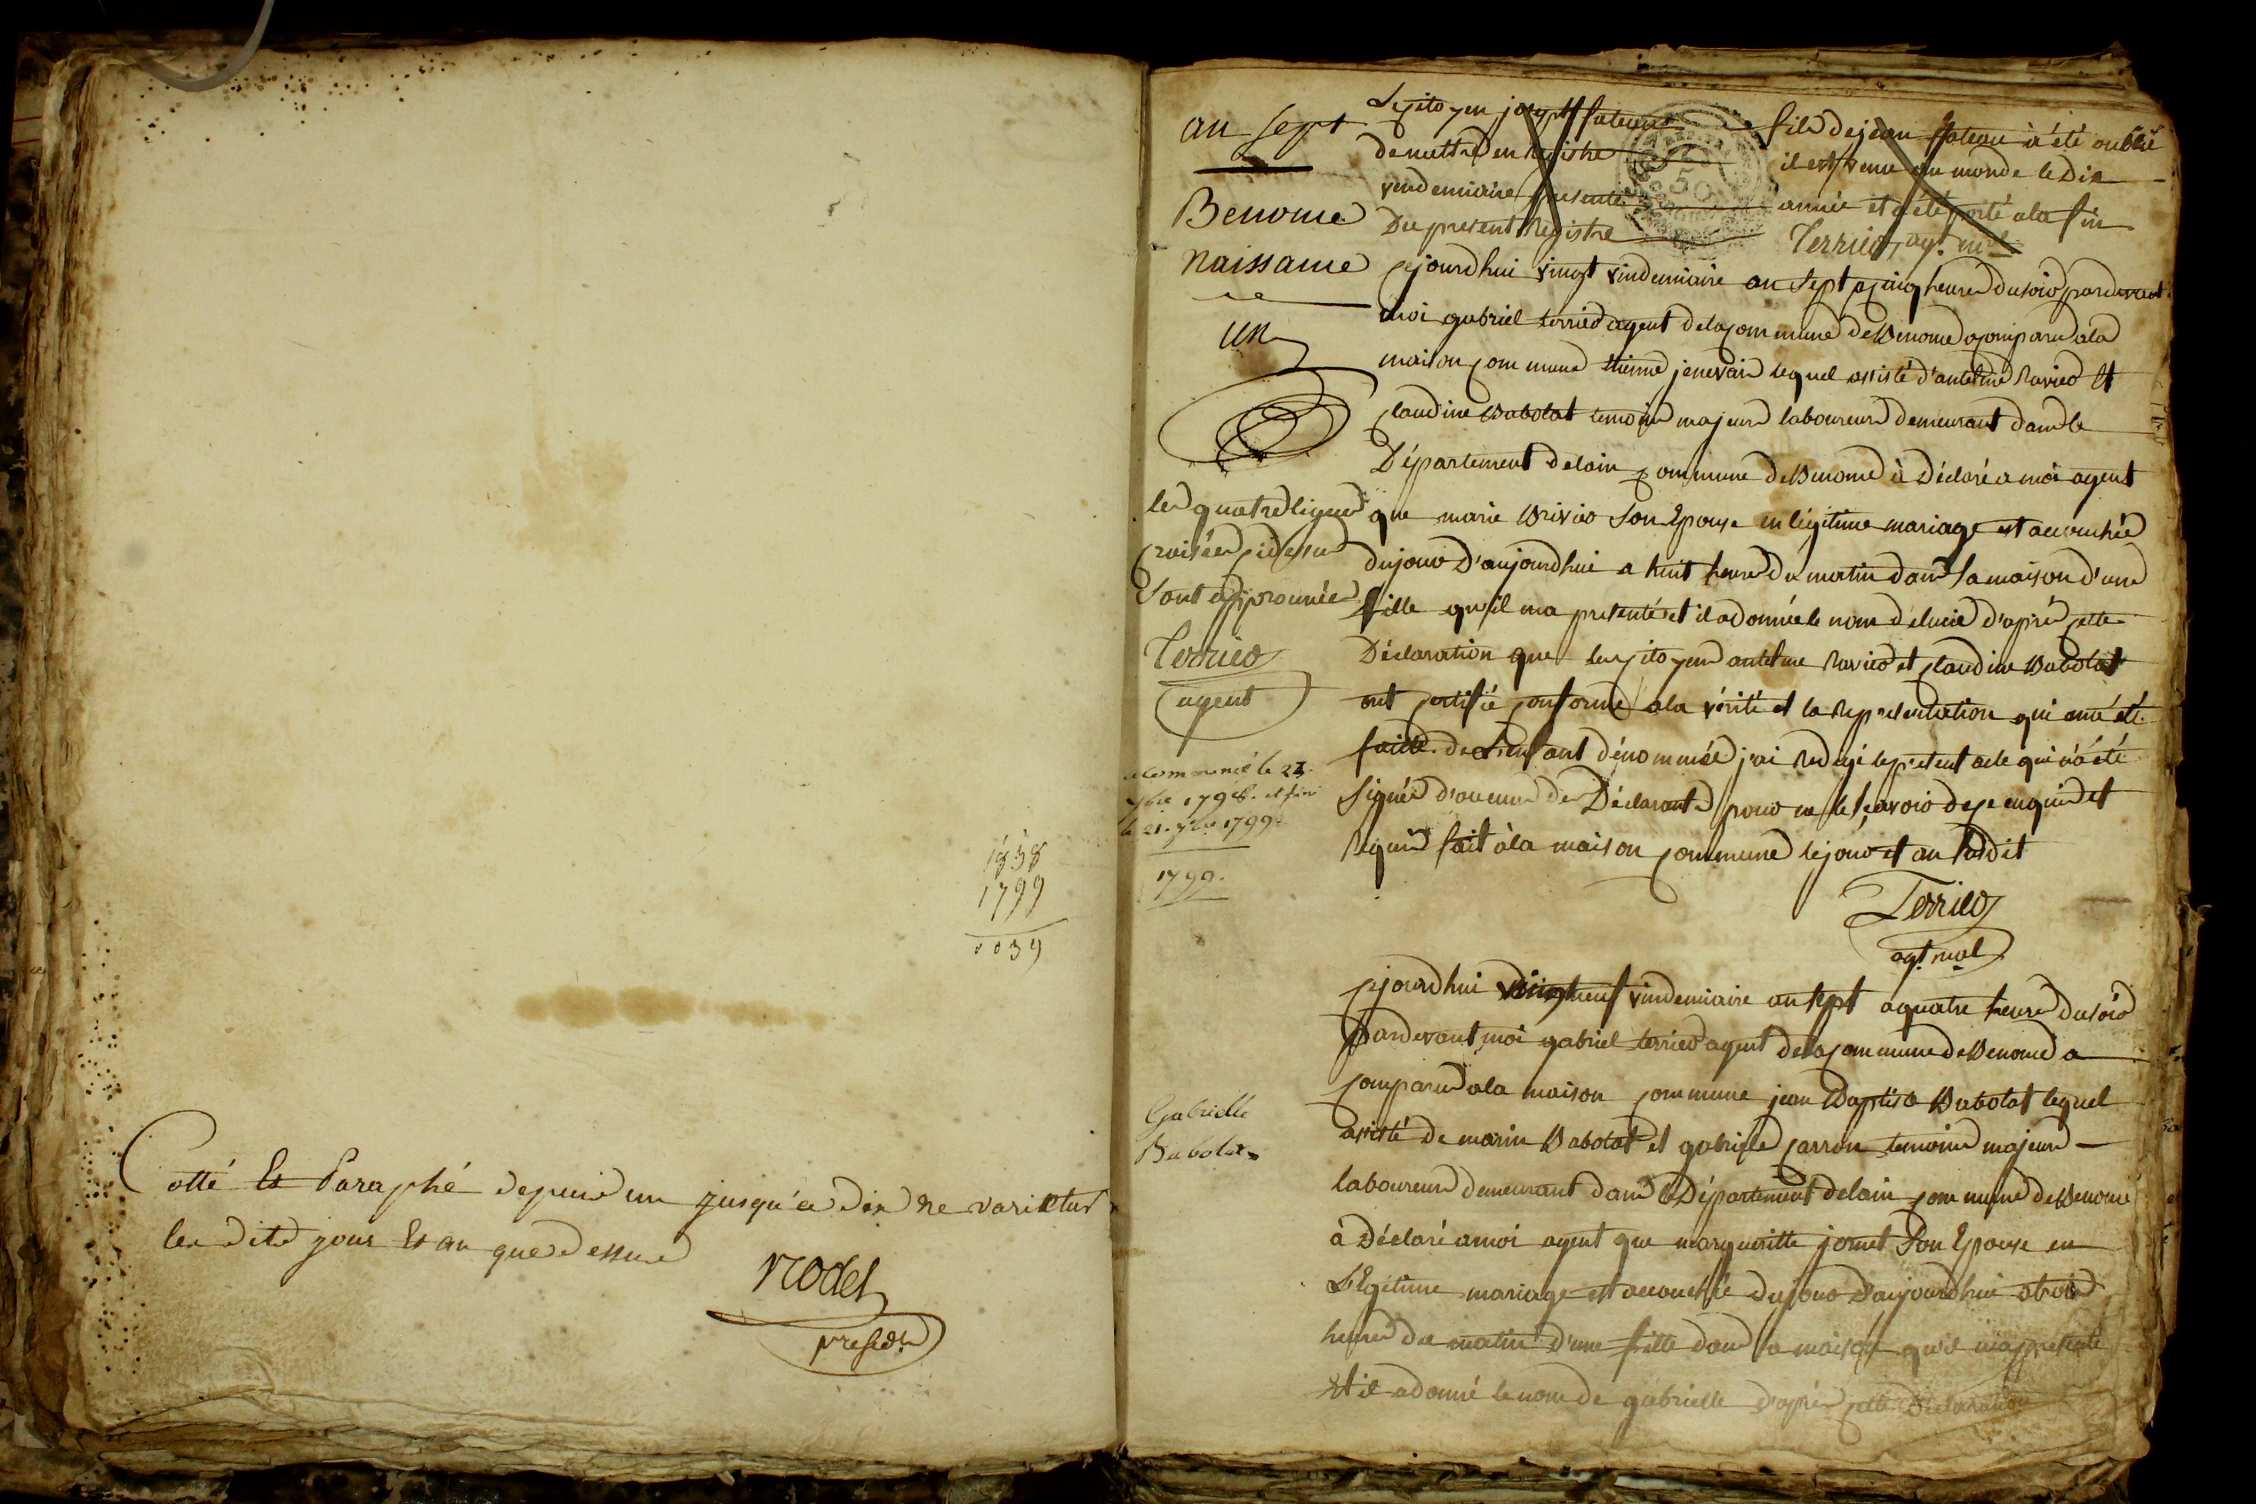 1838
1799
0039
Cotté Et Paraphé depuis un jusqu'a dix ne varietur
les dits jour Et an que dessus
Nodet
presidt
an sept
Benome
naissance
un
les quatre lignes
croisées ci dessus
sont approuvées
Terrier
agent
commencé le 21
7bre 1798. et fini
le 21. 7bre 1799.
1799.
Gabrielle
Babolat
Le citoyen joseph fateau fils de jean fateau à été oublié
de mettre en registre il est venu au monde le Dix
vendemiaire presente année et a été porté a la fin
Du present Registre Terrier, agt. mal
cejourdhui vingt vindemiaire an sept a cinq heures du soir pardevant
moi gabriel terrier agent de la commune de Benome a comparu à la
maison commune etienne jenevais lequel assisté d'antelme Ravier et
claudine Babolat temoins majeurs laboureurs demeurant dans le
Département de lain commune de Benome à Déclaré a moi agent
que marie Brivier son Epouse en légitime mariage est accouchée
du jour D'aujourdhui a huit heures du matin dans sa maison d'une
fille qu'il ma presenté et il a donné le nom de lucie d'après cette
Déclaration que les citoyens antelme Ravier et claudine Babolat
ont certifié conforme a la vérité et la Representation qui ma été
faitte de L'enfant dénommée j'ai Redigé le present acte qui n'a été
signée d'aucuns des Déclarants pour ne le sçavoir de ce enquis et
Requis fait à la maison commune le jour et an susdit
Terrier
agt. mal
cejourdhui vingt neuf vindemiaire an sept a quatre heures du soir
Pardevant moi gabriel terrier agent de la commune de Benome a
comparu a la maison commune jean Baptiste Babolat lequel
assisté de marin Babolat et gabriele carron temoins majeurs
laboureurs demeurant dans le Département de lain commune de Benome
à Déclaré a moi agent que margueritte jornet Son Epouse en
Légitime mariage est accouchée du jour D'aujourdhui a trois
heures du matin d'une fille dans sa maison qu'il ma presenté
Et il a donné le nom de gabrielle d'après cette Déclaration